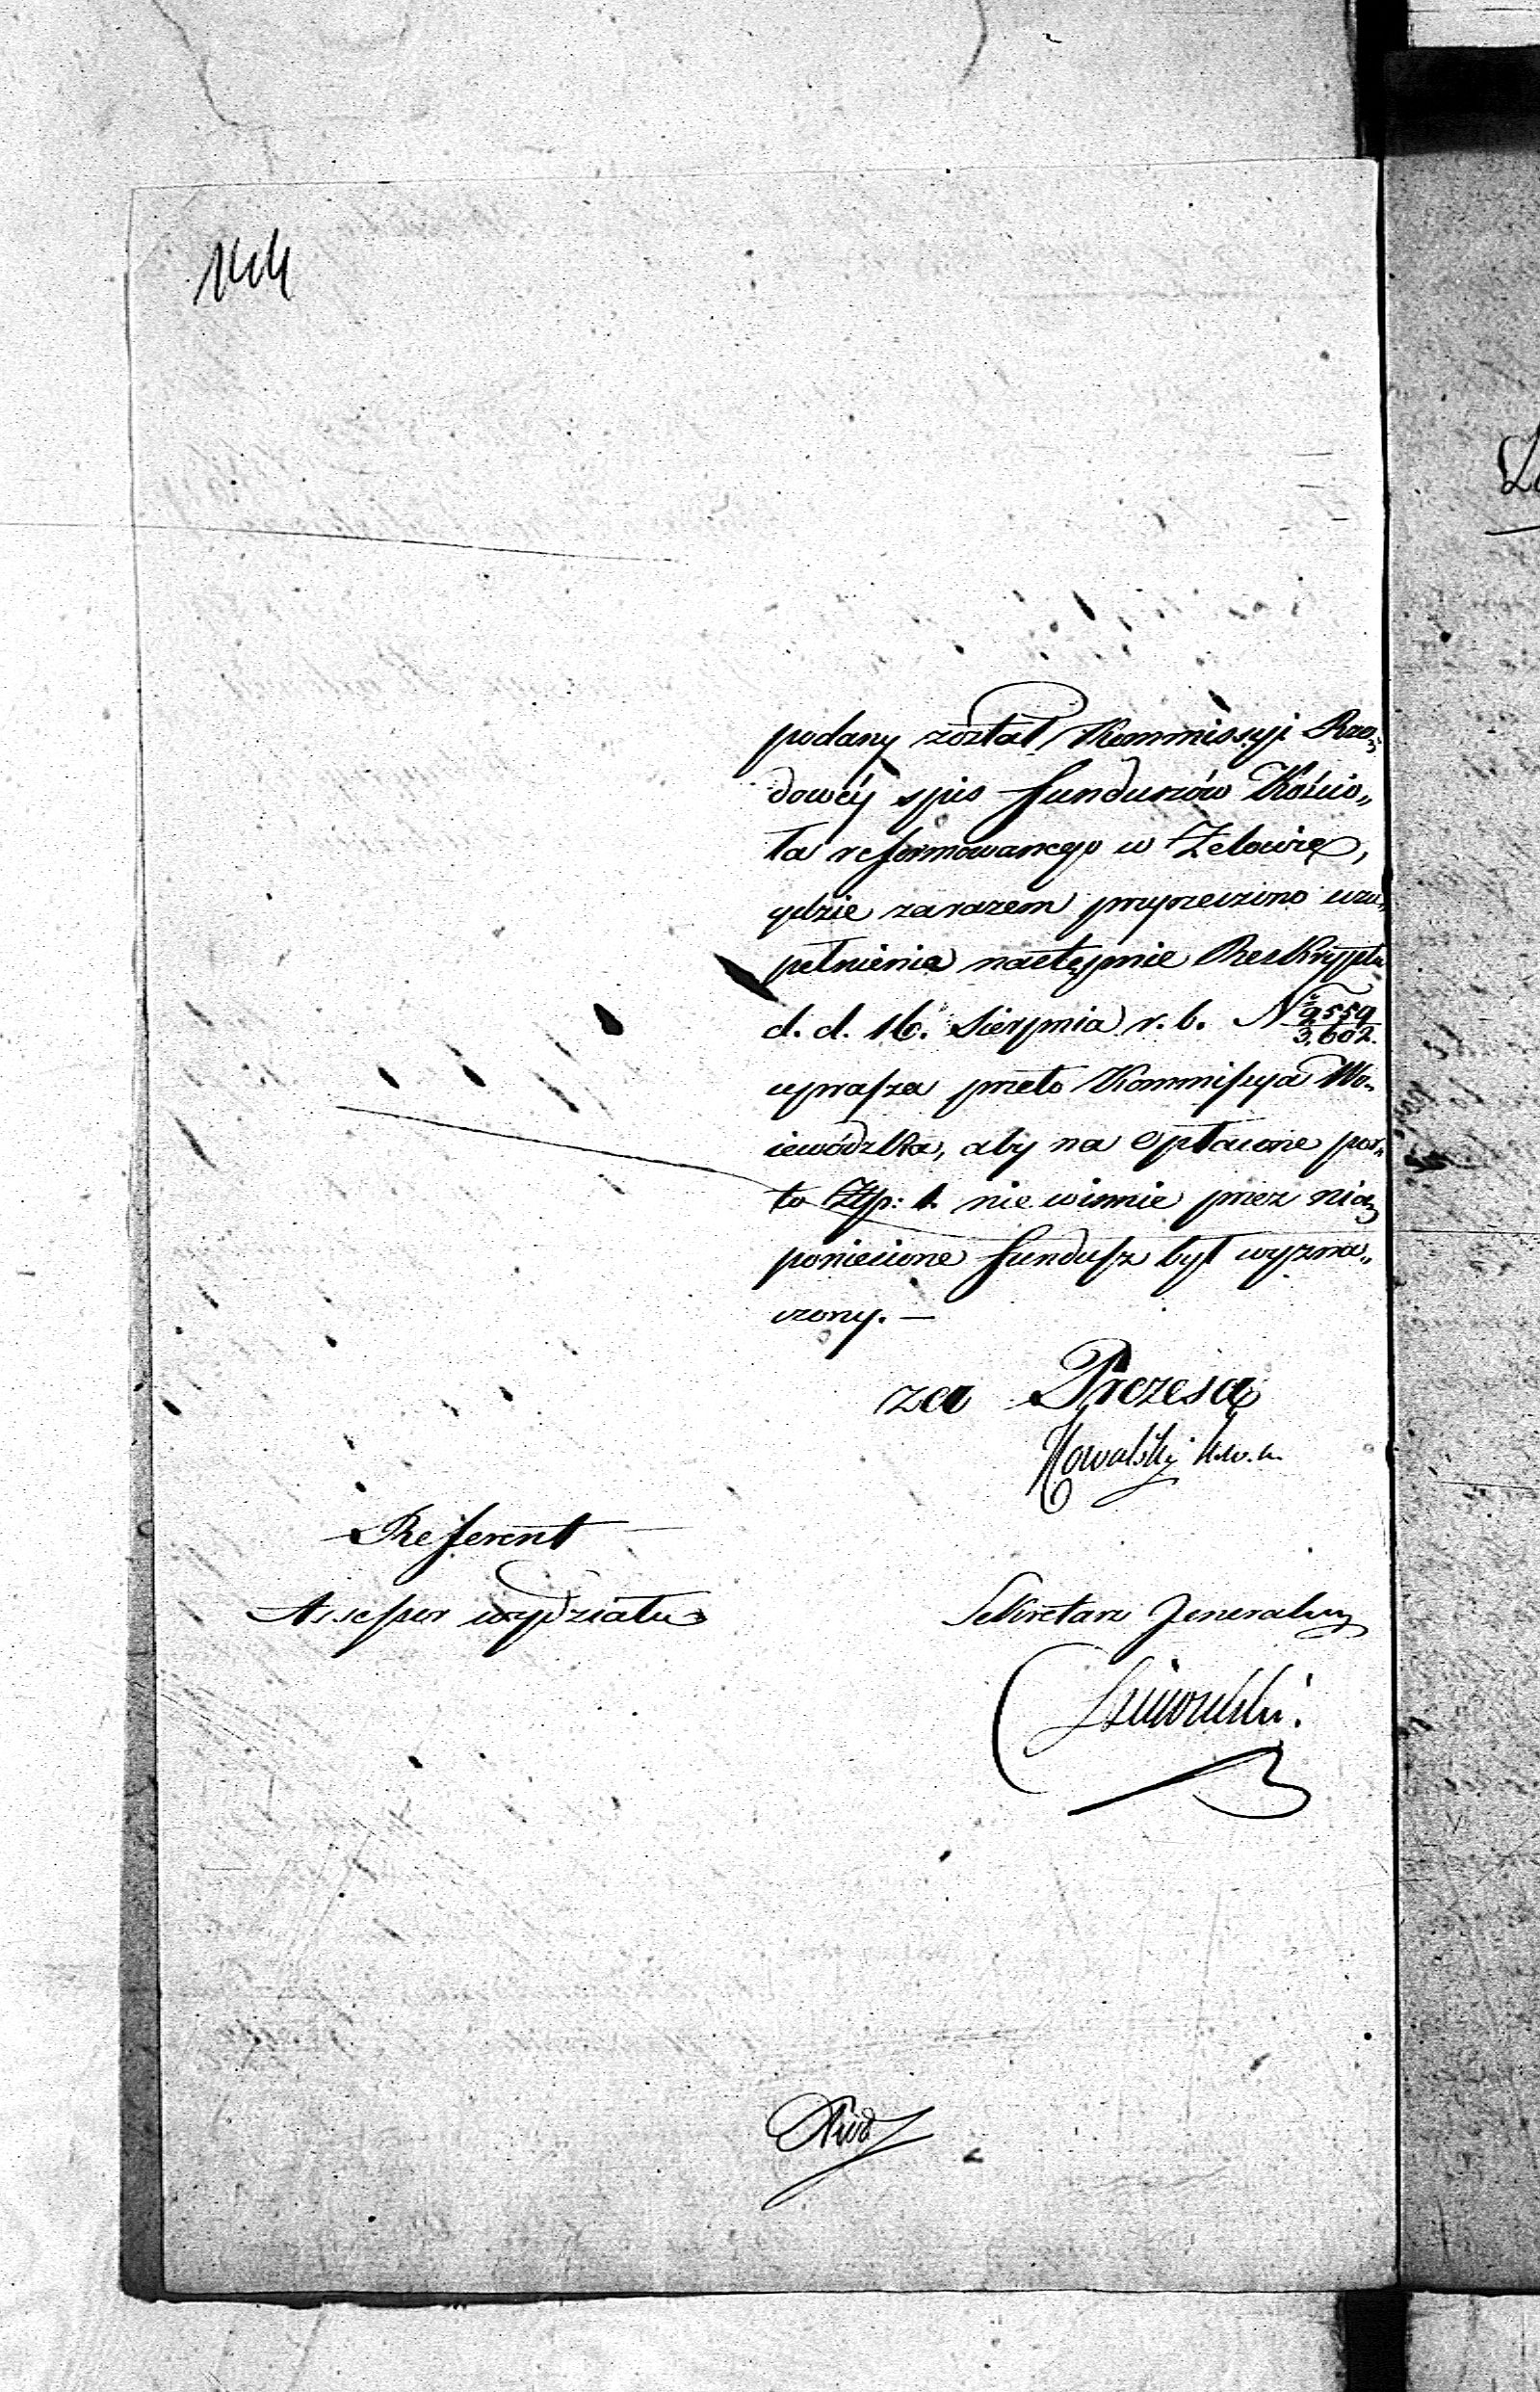 144
podany został Kommissyi Rzą„
dowéy spis funduszów Kościo„
ła reformowanego w Zelowie,
gdzie zarazem przyrzeczono uzu„
pełnienie następnie Reskryptu
d. d. 16. Sierpnia r. b. N° 9559/3,602.
uprasza przeto Kommissya Wo„
iewódzka, aby na opłacone por„
to Złp: 1. niewinnie przez nią
poniesione fundusz był wyzna„
czony. —
za Prezesa
Kowalski
Referent
Assessor wydziału
Sekretarz Jeneralny